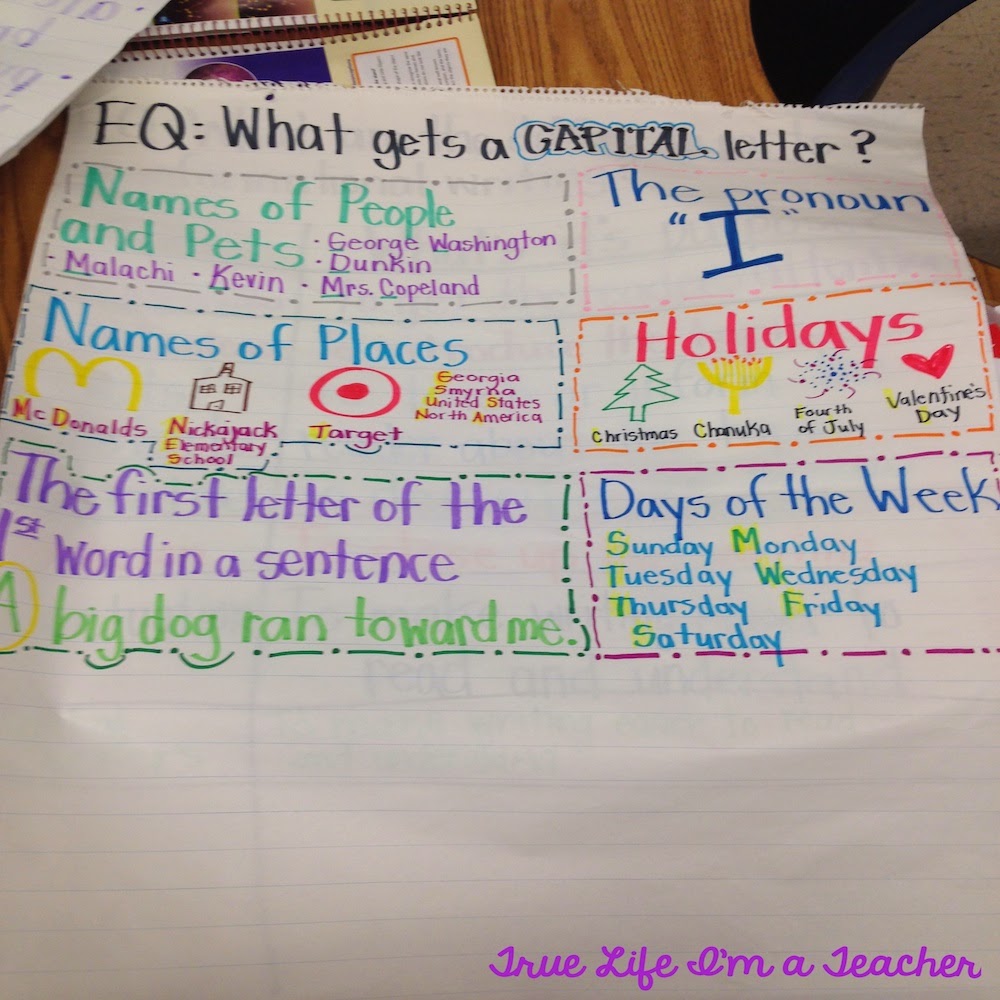 EQ: What gets a CAPITAL letter?
Names of People
and Pets · George Washington
· Dunkin
· Malachi · Kevin · Mrs. Copeland
The pronoun
"I"
Names of Places
McDonalds
Nickajack
Elementary
School
Target
Georgia
Smyrna
United States
North America
Holidays
Christmas
Chanuka
Fourth
of July
Valentine's
Day
The first letter of the
1st word in a sentence
A big dog ran toward me.
Days of the Week
Sunday Monday
Tuesday Wednesday
Thursday Friday
Saturday
True Life I'm a Teacher